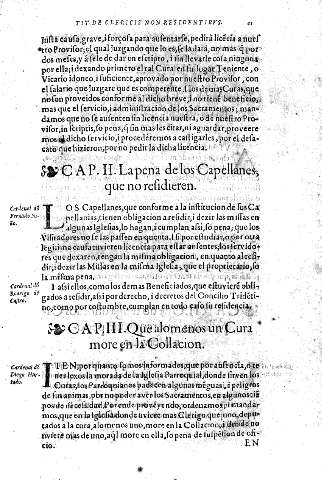 TIT. DE CLERICIS NON RESIDENTIBVS. 21
justa causa grave, i forçosa para ausentarse, pedirà licẽcia a nuestro
Provisor, el qual juzgando que lo es, se la darà, no mas q̃ por
dos mesès, y à se le dar in escriptis, i sin llevarle cosa ninguna
por ella; i dexando primero el tal Cura en su lugar Teniente, o
Vicario idoneo, i suficiente, aprovado por nuestro Provisor, con
el salario que juzgare que es competente. I los demas Curas, que
no son proveidos conforme al dicho breve, i no tienẽ beneficio,
mas que el servicio, i administracion de los Sacramentos, mandamos
que no se ausenten sin licencia nuestra, o de nuestro Provisor,
in scriptis, so pena, q̃ sin mas les citar, ni aguardar, proveeremos
el dicho servicio, i procederẽmos a castigarles, por el desacato
que hizieron, por no pedir la dicha licencia.
CAP. II. La pena de los Capellanes,
que no residieren.
LOS Capellanes, que conforme a la institucion de sus Capellanias,
tienen obligacion a residir, i dezir las missas en
algunas Iglesias, lo hagan, i cumplan assi, so pena, que los
Visitadores no se las passen en quenta. I si por estudiar, o por otra
legitima causa tuvieren licencia para estar ausentes, los servidores
que dexaren, tengan la misma obligacion, en quanto al residir,
i dezir las Missas en la misma Iglesia, que el proprietario, so
la misma pena.
I assi ellos, como los demas Beneficiados, que estuvierẽ obligados
a residir, assi por derecho, i decretos del Concilio Tridẽtino,
como por costumbre, cumplan en todo caso su residencia.
Cardenal dõ
Sandoval dõ
Castro.
CAP. III. Que a lo menos un Cura
more en la Collacion.
Cardenal dõ
Diego Hurtado.
ITEN, por quanto somos informados, que por ausencia, o tener
lexos la morada de la Iglesia Parroquial, donde sirven los
Curas, los Parroquianos padecen algunas mẽguas, i peligros
de sus animas, por no poder aver los Sacramentos, en algunos tiẽpos
de necessidad. Por ende proveyẽdo, ordenamos, i mandamos,
que en la Iglesia donde uviere mas Clerigo que uno, deputados
a la cura, a lo menos uno, more en la Collacion, i donde no
uviere mas de uno, aquel more en ella, so pena de suspẽsion de oficio.
EN